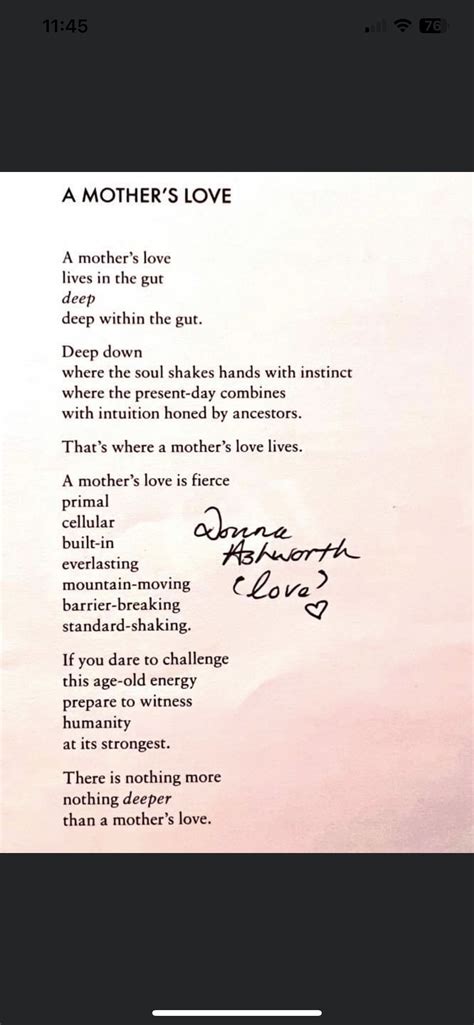 11:45
76
A MOTHER'S LOVE
A mother's love
lives in the gut
deep
deep within the gut.
Deep down
where the soul shakes hands with instinct
where the present-day combines
with intuition honed by ancestors.
That's where a mother's love lives.
A mother's love is fierce
primal
cellular
built-in
everlasting
mountain-moving
barrier-breaking
standard-shaking.
Donna
Ashworth
(love)
If you dare to challenge
this age-old energy
prepare to witness
humanity
at its strongest.
There is nothing more
nothing deeper
than a mother's love.